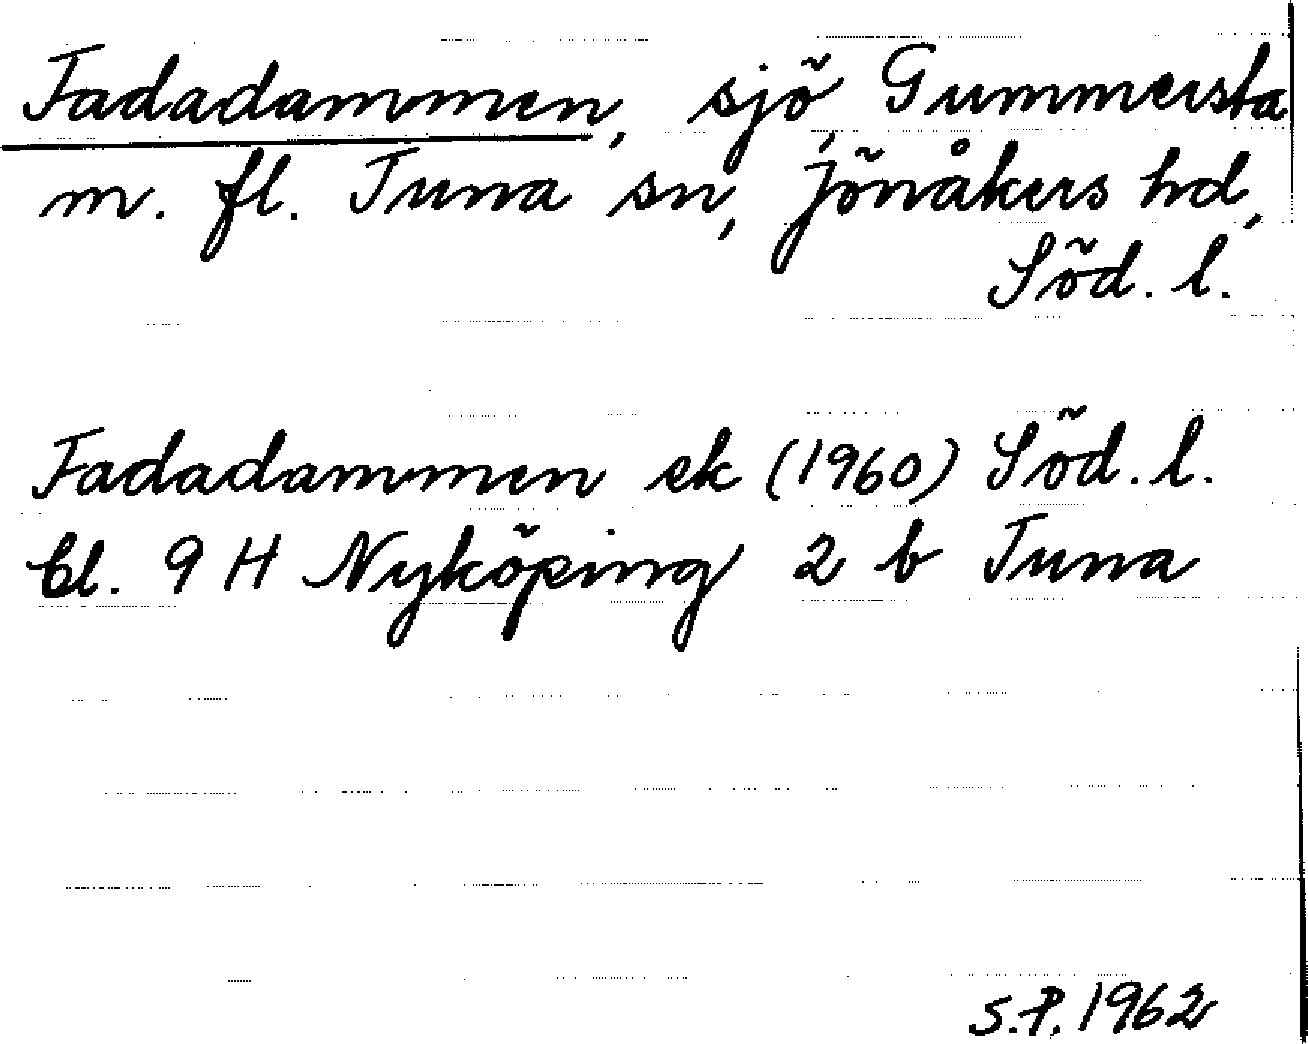 Fadadammen, sjö, Gummersta
m. fl. Tuna sn, Jönåkers hd,
Söd. l.
Fadadammen ek (1960) Söd. l.
bl. 9 H Nyköping 2 b Tuna
S.P. 1962